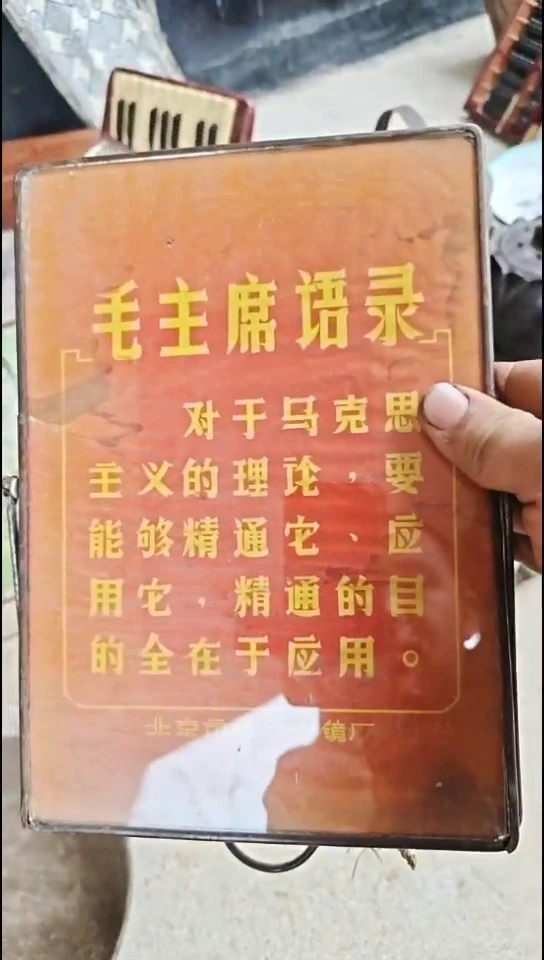 毛主席语录
对于马克思
主义的理论，要
能够精通它、应
用它，精通的目
的全在于应用。
北京市 镜厂